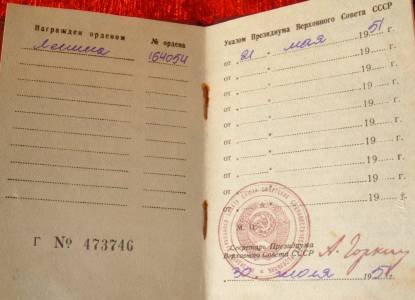 Награжден орденом № ордена
Ленина 164054
Г № 473746
Указом Президиума Верховного Совета СССР
от „ 21 „ мая 1951 г.
от „ „ 195 г.
от „ „ 19 г.
от „ „ 19 г.
от „ „ 19 г.
от „ „ 19 г.
от „ „ 19 г.
от „ „ 19 г.
от „ „ 19 г.
М. П.
Секретарь Президиума
Верховного Совета СССР А. Горкин
30 июля 1951 г.